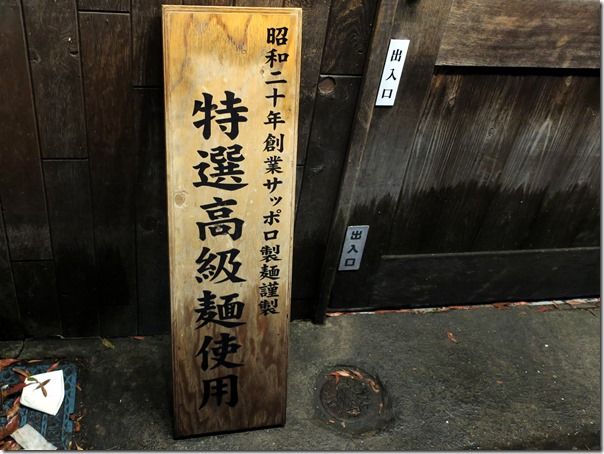 昭和二十年創業サッポロ製麺謹製
特選高級麺使用
出入口
出入口